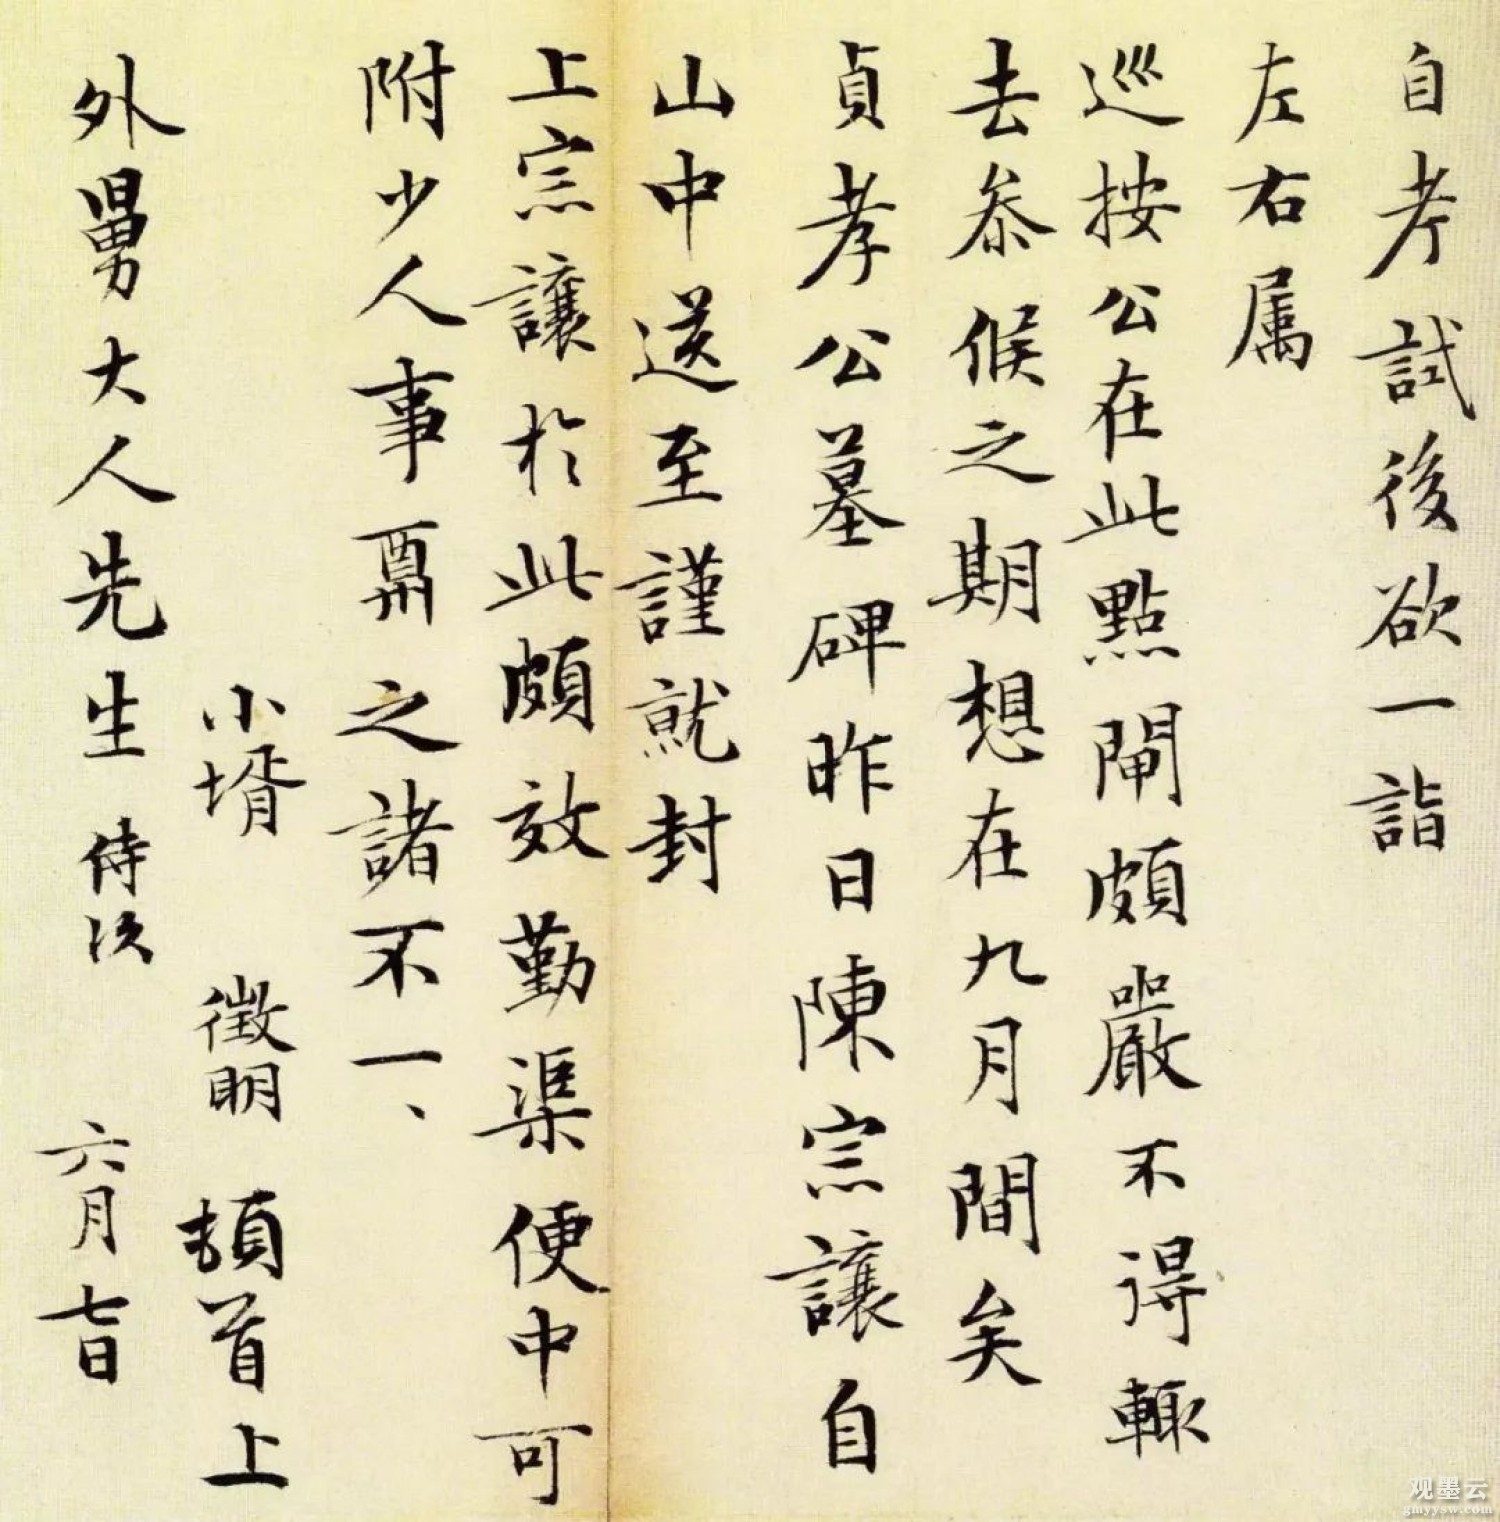 自考試後欲一詣
左右属
巡按公在此點閘頗嚴不得輙
去叅候之期想在九月間矣
貞孝公墓碑昨日陳宗讓自
山中送至謹就封
上宗讓於此頗效勤渠便中可
附少人事酬之諸不一、
小壻 徵明 頓首上
外舅大人先生 侍次 六月七日
观墨云
gmyysw.com